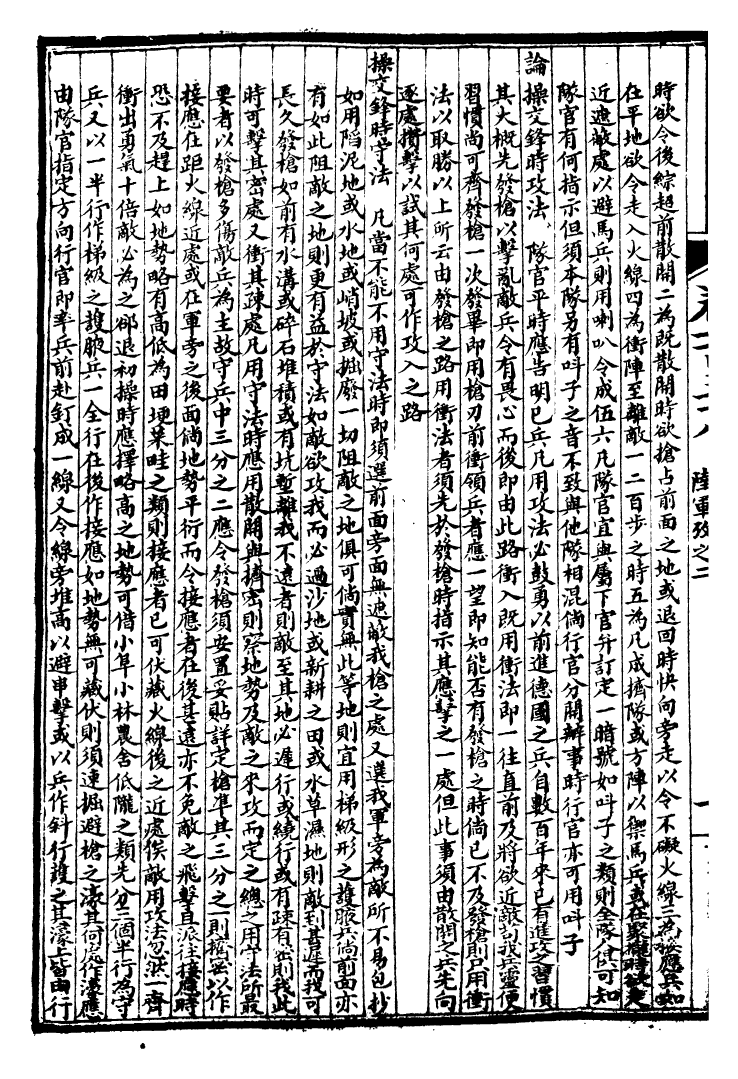 時欲令後綜超前散開二為既散開時欲搶占前面之地或退回時快向旁走以令不礙火線三為接應兵如
在平地欲令走入火線四為衝陣至離敵一二百步之時五為凡成擠隊或方陣以禦馬兵或在
近遮敵處以避馬兵則用喇叭令成伍六凡隊官宜與屬下官弁訂定一暗號如叫子之類則全隊俱可知
隊官有何指示但須本隊另有叫子之音不致與他隊相混倘行官分開辦事時行官亦可用叫子
論操交鋒時攻法 隊官平時應告明已兵凡用攻法必鼓勇以前進德國之兵自數百年來已有進攻之習慣
其大概先發槍以擊亂敵兵令有畏心而後即由此路衝入既用衝法即一往直前及將欲近敵則我兵靈便
習慣尚可齊發槍一次發畢即用槍刃前衝領兵者應一望即知能否有發槍之時倘已不及發槍則只用衝
法以取勝以上所云由發槍之路用衝法者須先於發槍時指示其應擊之一處但此事須由散開之兵先向
逐處攢擊以試其何處可作攻入之路
操交鋒時守法 凡當不能不用守法時即須選前面旁面無遮敵我槍之處又選我軍旁為敵所不易包抄
如用陷泥地或水地或峭坡或掘廢一切阻敵之地俱可倘實無此等地則宜用梯級形之護腋兵倘前面亦
有如此阻敵之地則更有益於守法如敵欲攻我而必過沙地或新耕之田或水草濕地則敵到甚遲而我可
長久發槍如前有水溝或碎石堆積或有坑塹離我不遠者則敵至其地必遲行或繞行或有疎有密則我此
時可擊其密處又衝其疎處凡用守法時應用散開與擠密則察地勢及敵之來攻而定之總之用守法所最
要者以發槍多傷敵兵為主故守兵中三分之二應令發槍須安置妥貼詳定槍準其三分之一則擠密以作
接應在距火線近處或在軍旁之後面倘地勢平衍而令接應者在後甚遠亦不免敵之飛擊且派往接應時
恐不及趕上如地勢略有高低為田埂菜畦之類則接應者已可伏藏火線後之近處俟敵用攻法忽然一齊
衝出勇氣十倍敵必為之卻退初操時應擇略高之地勢可借小阜小林農舍低隴之類先分三個半行為守
兵又以一半行作梯級之護腋兵一全行在後作接應如地勢無可藏伏則須速掘避槍之濠其何處作濠應
由隊官指定方向行官即率兵前赴釘成一線又令線旁堆高以避串擊或以兵作斜行護之其濠上皆由行
陸軍攷之二